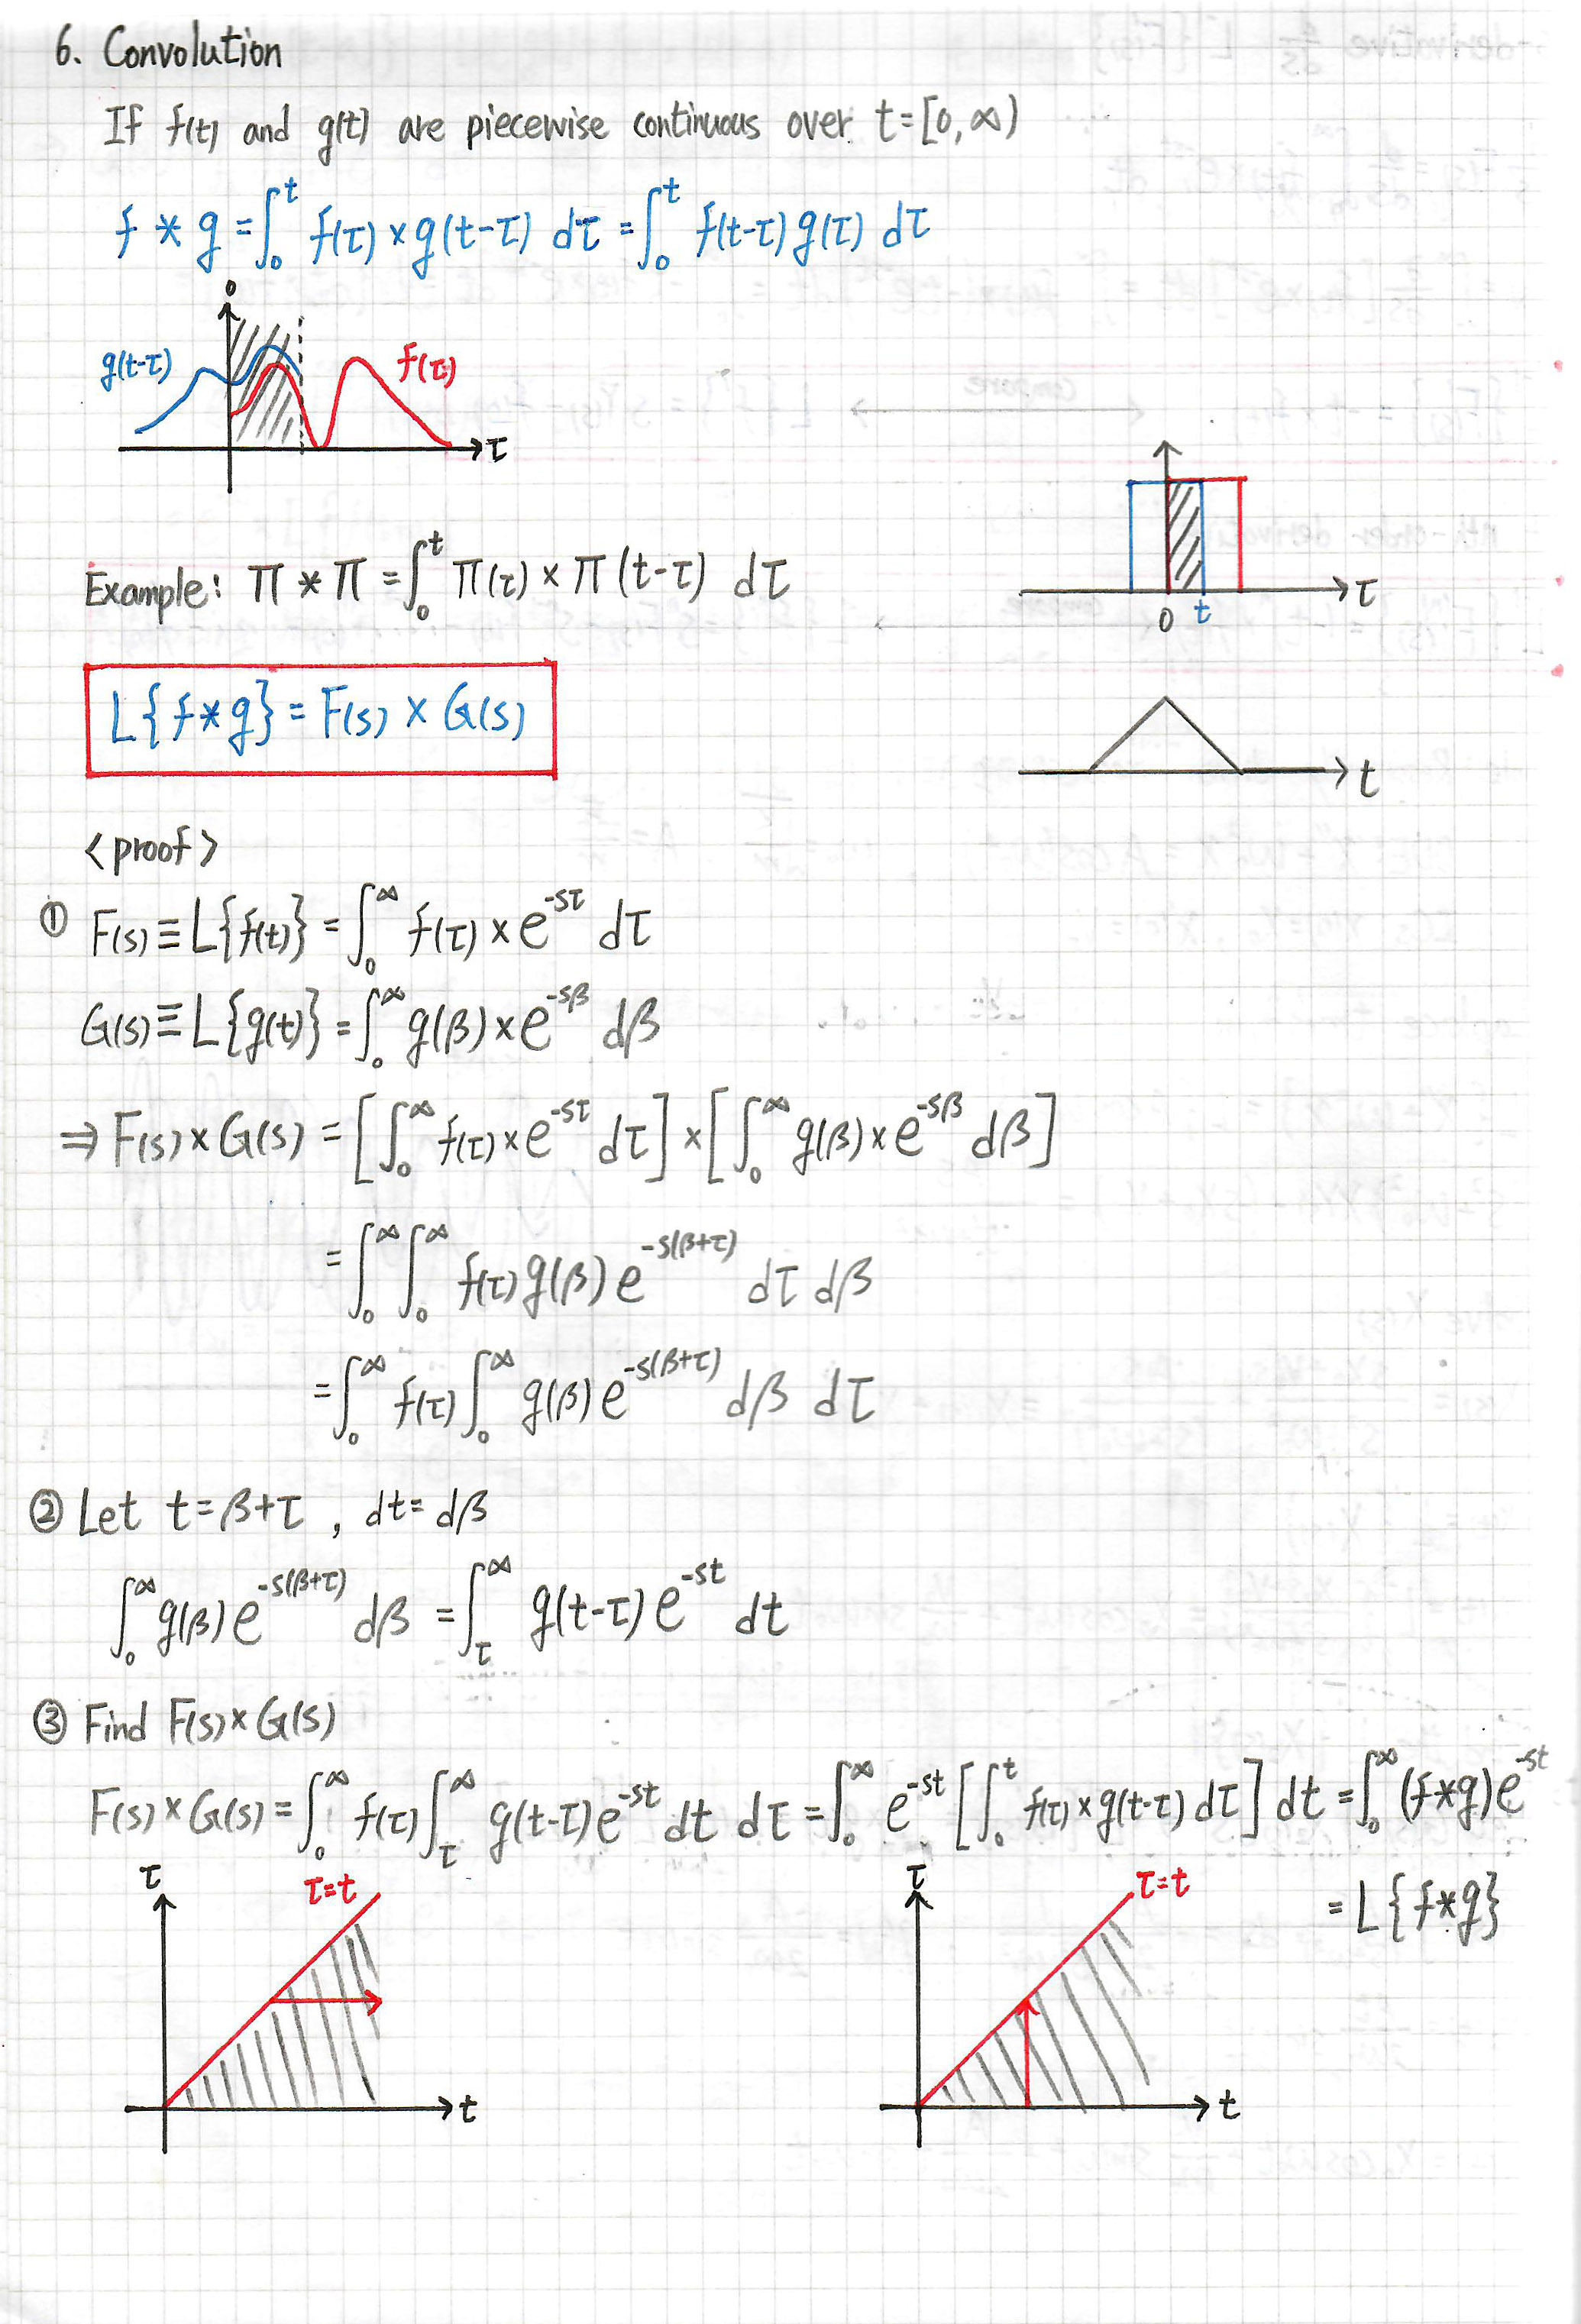 6. Convolution
If f(t) and g(t) are piecewise continuous over t=[0,∞)
f * g = ∫₀ᵗ f(τ) × g(t-τ) dτ = ∫₀ᵗ f(t-τ) g(τ) dτ
g(t-τ)
f(τ)
τ
Example: Π * Π = ∫₀ᵗ Π(τ) × Π(t-τ) dτ
τ
0 t
L{f*g} = F(s) × G(s)
t
<proof>
① F(s) ≡ L{f(t)} = ∫₀^∞ f(τ) × e^{-sτ} dτ
G(s) ≡ L{g(t)} = ∫₀^∞ g(β) × e^{-sβ} dβ
⇒ F(s) × G(s) = [∫₀^∞ f(τ) × e^{-sτ} dτ] × [∫₀^∞ g(β) × e^{-sβ} dβ]
= ∫₀^∞ ∫₀^∞ f(τ) g(β) e^{-s(β+τ)} dτ dβ
= ∫₀^∞ f(τ) ∫₀^∞ g(β) e^{-s(β+τ)} dβ dτ
② Let t=β+τ , dt=dβ
∫₀^∞ g(β) e^{-s(β+τ)} dβ = ∫_τ^∞ g(t-τ) e^{-st} dt
③ Find F(s)×G(s)
F(s)×G(s) = ∫₀^∞ f(τ) ∫_τ^∞ g(t-τ) e^{-st} dt dτ = ∫₀^∞ e^{-st} [∫₀ᵗ f(τ) × g(t-τ) dτ] dt = ∫₀^∞ (f*g) e^{-st}
= L{f*g}
τ
τ=t
t
τ
τ=t
t